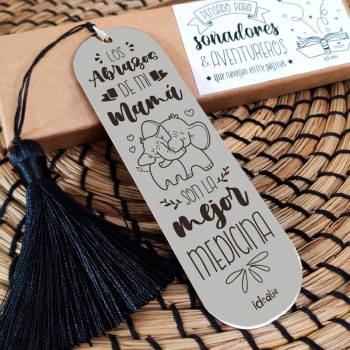 PENSADO PARA
soñadores
& AVENTUREROS
que navegan entre páginas
LOS
Abrazos
DE MI
Mamá
SON LA
mejor
MEDICINA
idealia